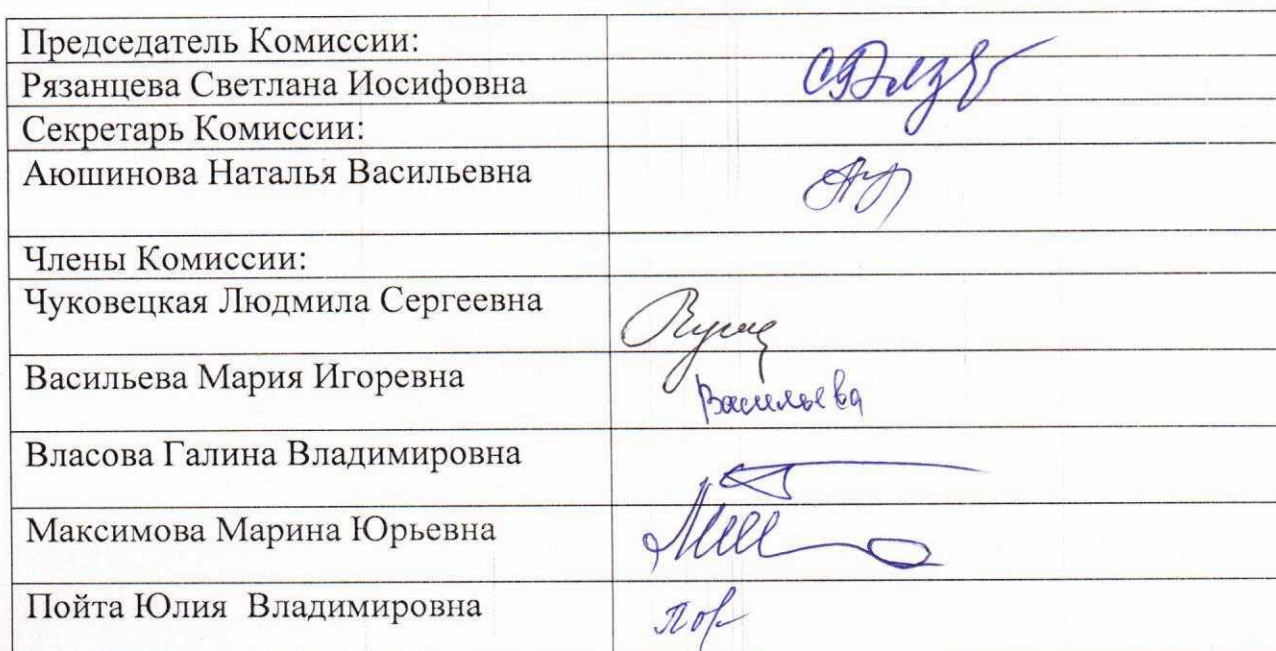 Председатель Комиссии:
Рязанцева Светлана Иосифовна
Секретарь Комиссии:
Аюшинова Наталья Васильевна
Члены Комиссии:
Чуковецкая Людмила Сергеевна
Васильева Мария Игоревна
Васильева
Власова Галина Владимировна
Максимова Марина Юрьевна
Пойта Юлия Владимировна